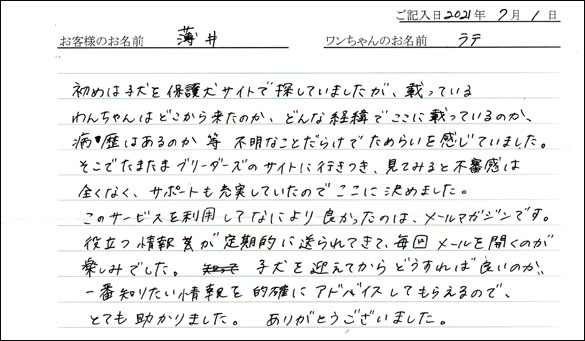 ご記入日 2021年 7月 1日
お客様のお名前 薄井 ワンちゃんのお名前 ラテ
初めは子犬を保護犬サイトで探していましたが、載っている
わんちゃんはどこから来たのか、どんな経緯でここに載っているのか、
病歴はあるのか 等 不明なことだらけでためらいを感じていました。
そこでたまたまブリーダーズのサイトに行きつき、見てみると不審感は
全くなく、サポートも充実していたのでここに決めました。
このサービスを利用してなにより良かったのは、メールマガジンです。
役立つ情報が定期的に送られてきて、毎回メールを開くのが
楽しみでした。 子犬を迎えてからどうすれば良いのか、
一番知りたい情報を的確にアドバイスしてもらえるので、
とても助かりました。 ありがとうございました。